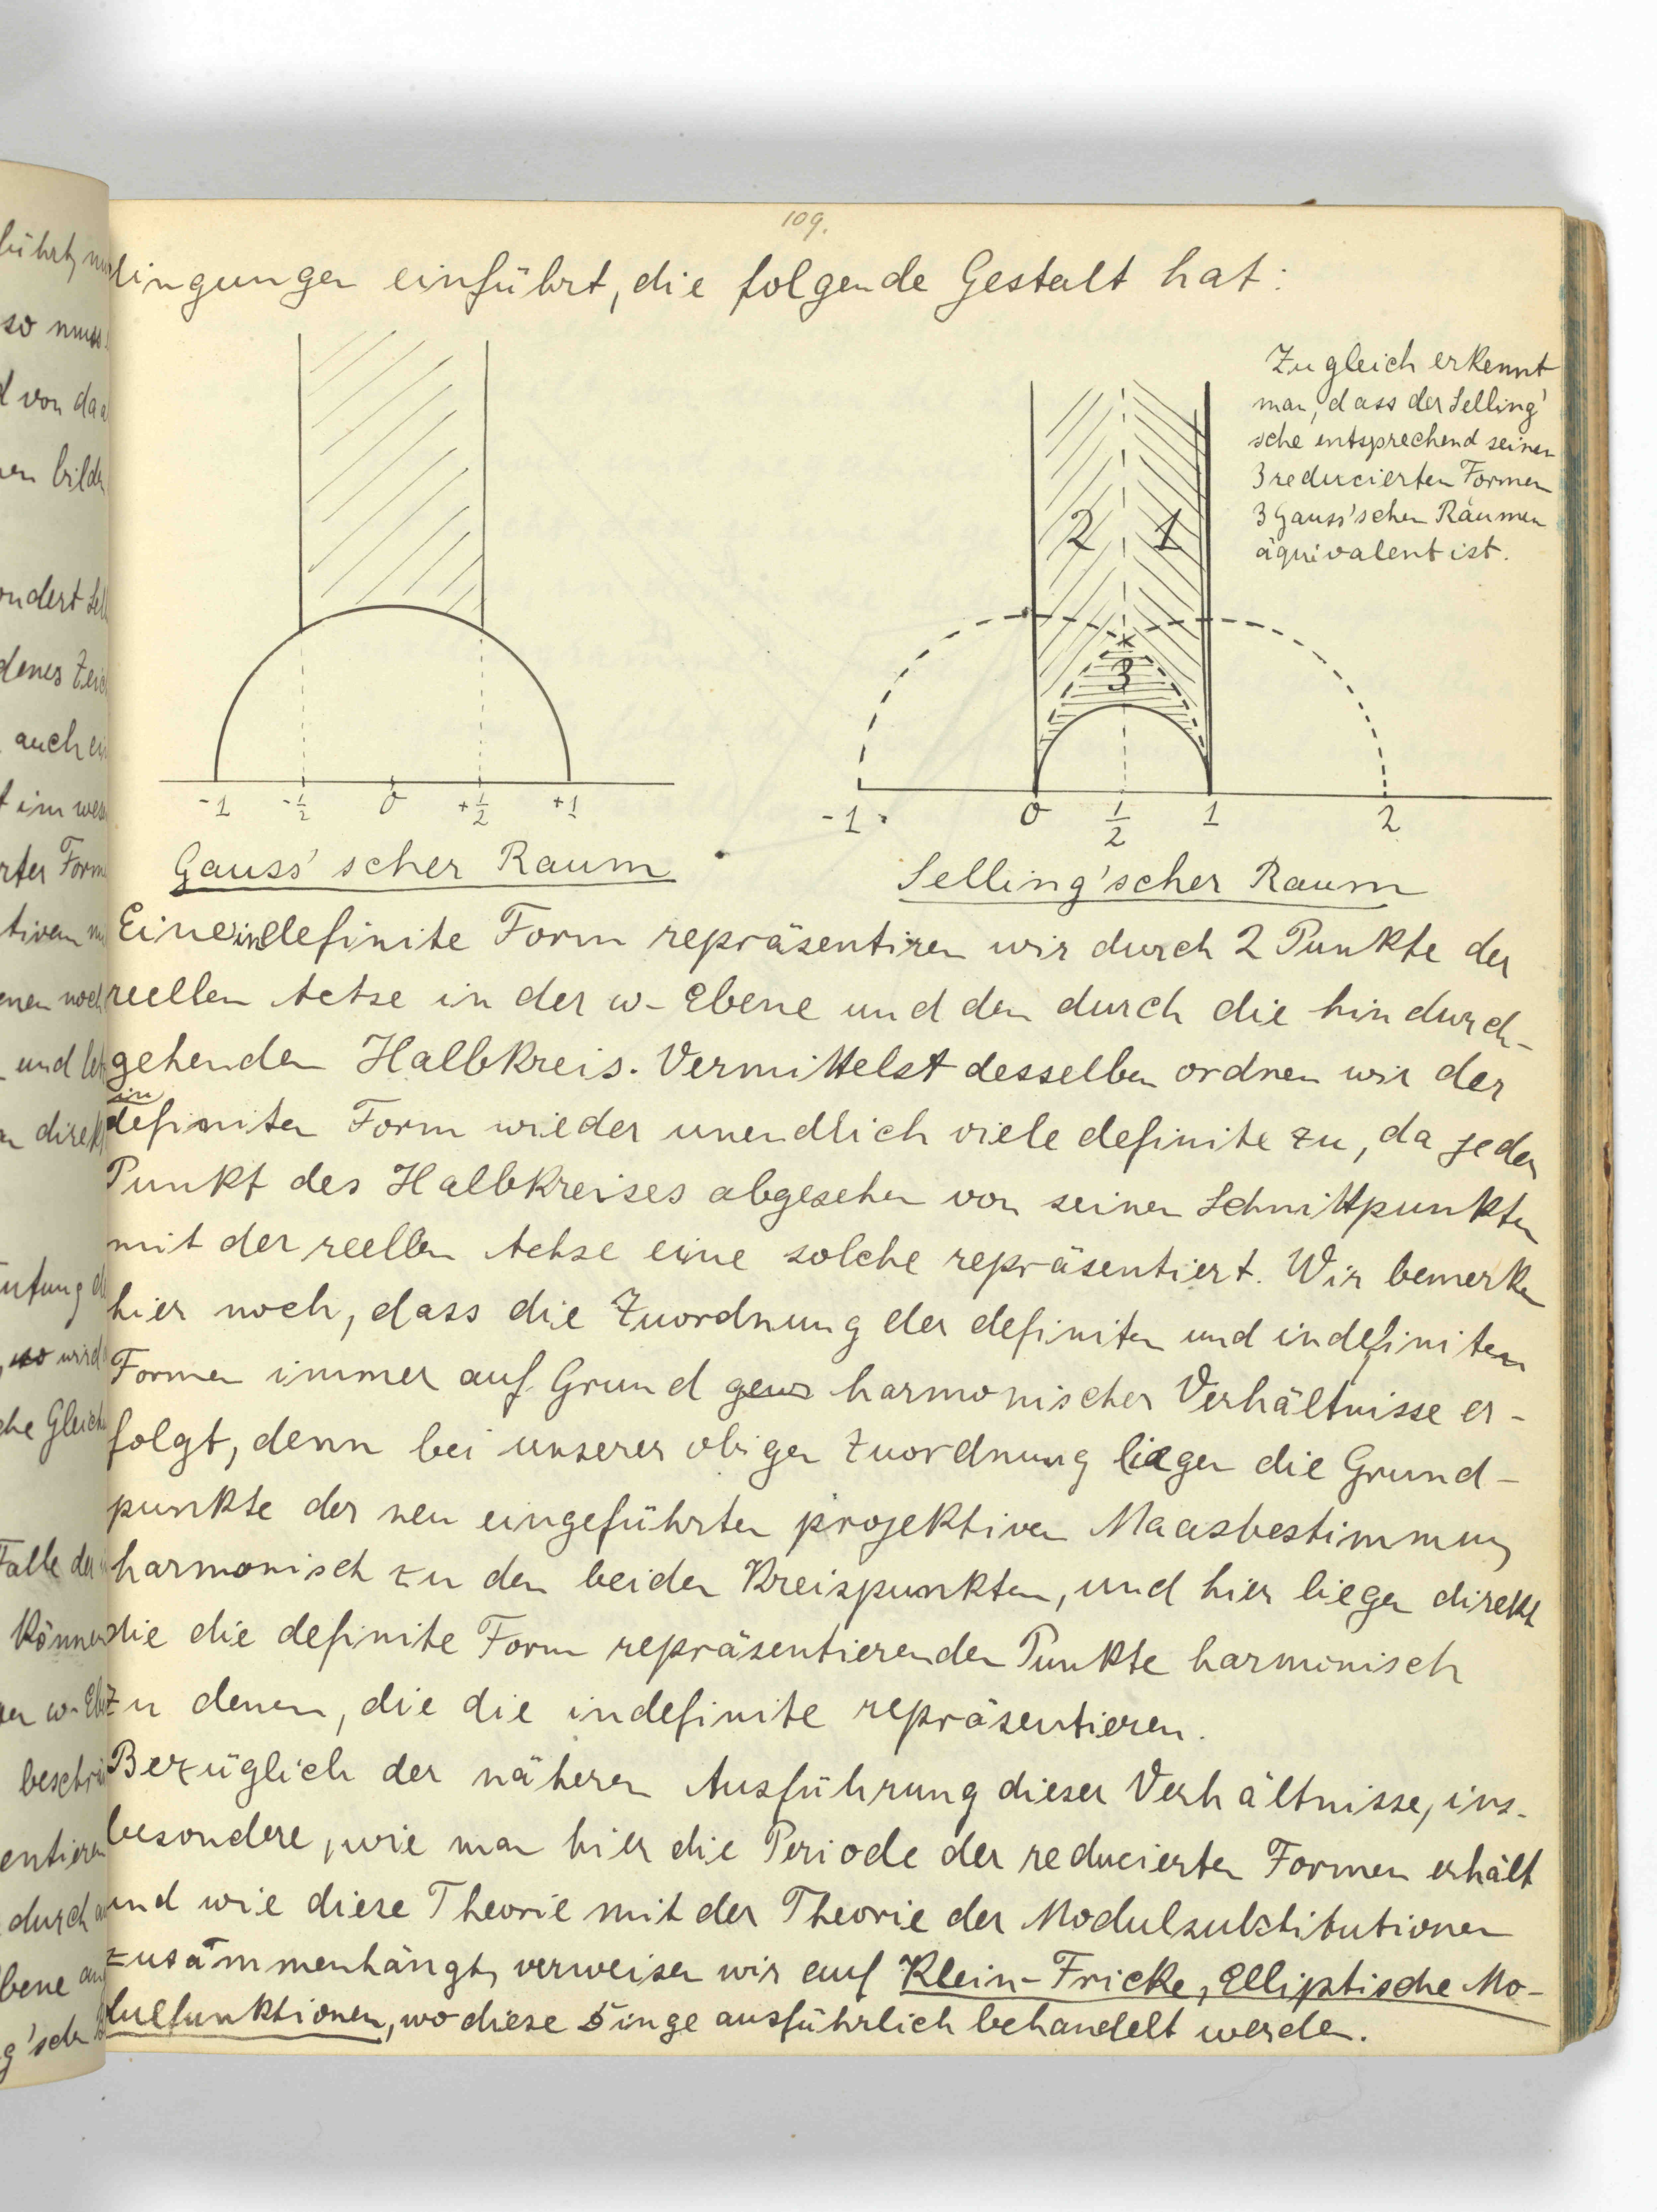 109.
dingungen einführt, die folgende Gestalt hat:
Zugleich erkennt
man, dass der Selling'
sche entsprechend seinen
3 reducierten Formen
3 Gauss'schen Räumen
äquivalent ist.
2 1
3
-1 -1/2 0 +1/2 +1
-1 0 1/2 1 2
Gauss'scher Raum
Selling'scher Raum
Eine indefinite Form repräsentiren wir durch 2 Punkte der
reellen Achse in der w-Ebene und den durch die hindurch-
gehenden Halbkreis. Vermittelst desselben ordnen wir der
indefiniten Form wieder unendlich viele definite zu, da jeder
Punkt des Halbkreises abgesehen von seinen Schnittpunkten
mit der reellen Achse eine solche repräsentiert. Wir bemerken
hier noch, dass die Zuordnung der definiten und indefiniten
Formen immer auf Grund harmonischer Verhältnisse er-
folgt, denn bei unserer obigen Zuordnung liegen die Grund-
punkte der neu eingeführten projektiven Maasbestimmung
harmonisch zu den beiden Kreispunkten, und hier liegen direkt
die die definite Form repräsentierenden Punkte harmonisch
zu denen, die die indefinite repräsentieren.
Bezüglich der näheren Ausführung dieser Verhältnisse, ins-
besondere, wie man hier die Periode der reducierten Formen erhält
und wie diese Theorie mit der Theorie der Modulsubstitutionen
zusammenhängt, verweisen wir auf Klein-Fricke, Elliptische Mo-
dulfunktionen, wo diese Dinge ausführlich behandelt werden.